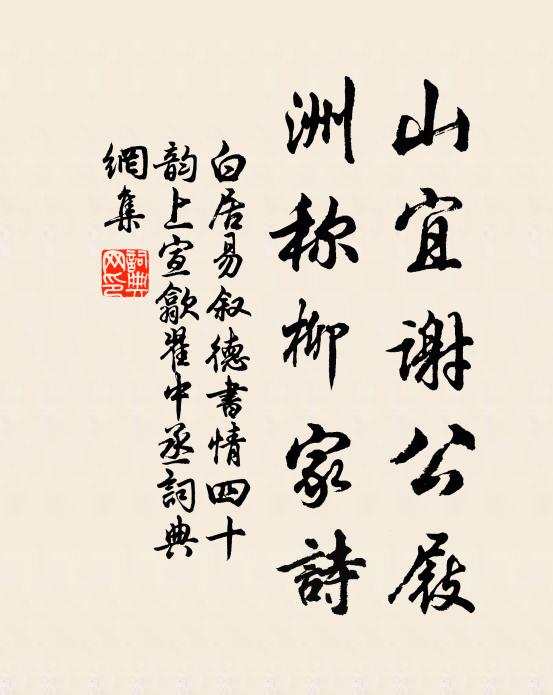 山宜謝公屐
洲称柳家詩
白居易叙德書情四十
韵上宣歙翟中丞詞典
網集
詞典网印